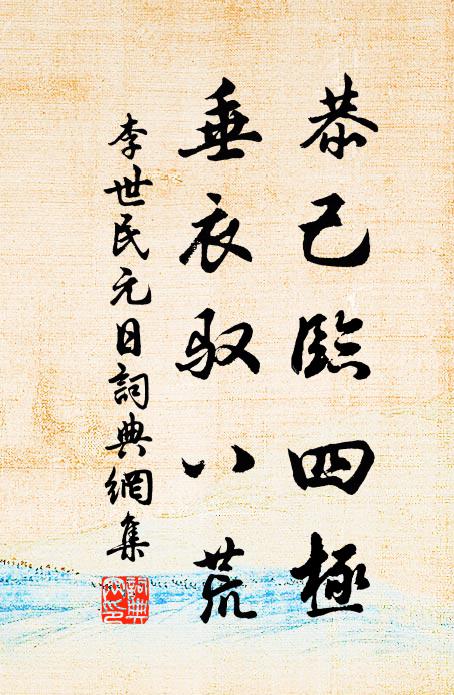 恭己臨四極
垂衣馭八荒
李世民元日詞典網集